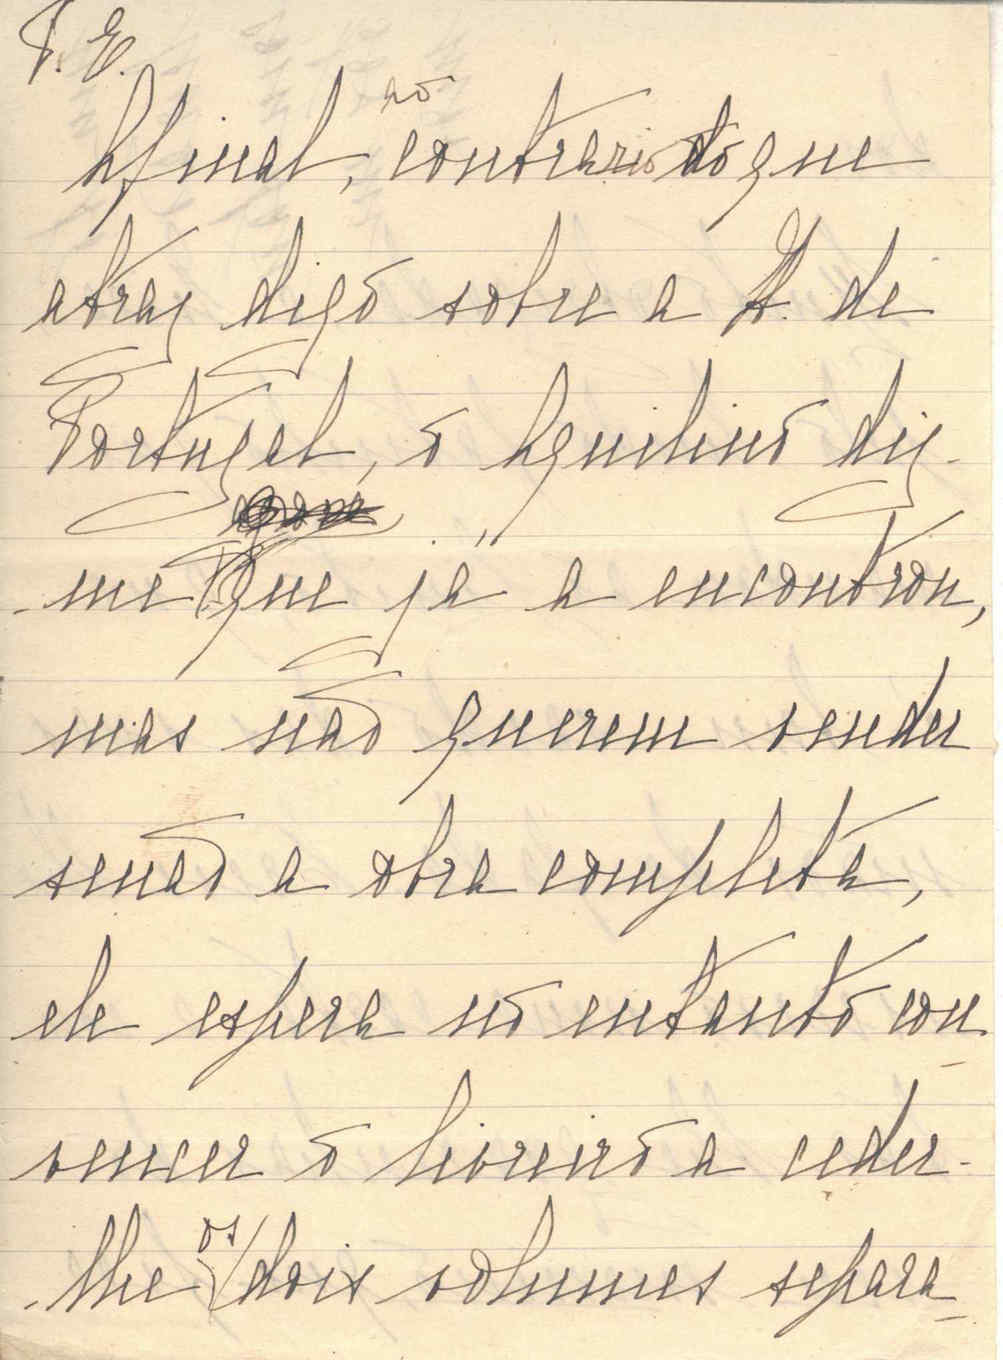 P. E.
Afinal, ao contrario do que
atraz digo sobre a H. de
Portugal, o Aquilino diz-
-me que já a encontrou,
mas não querem vender
senão a obra completa,
ele espera no entanto con-
vencer o livreiro a ceder-
-lhe os dois volumes separa-